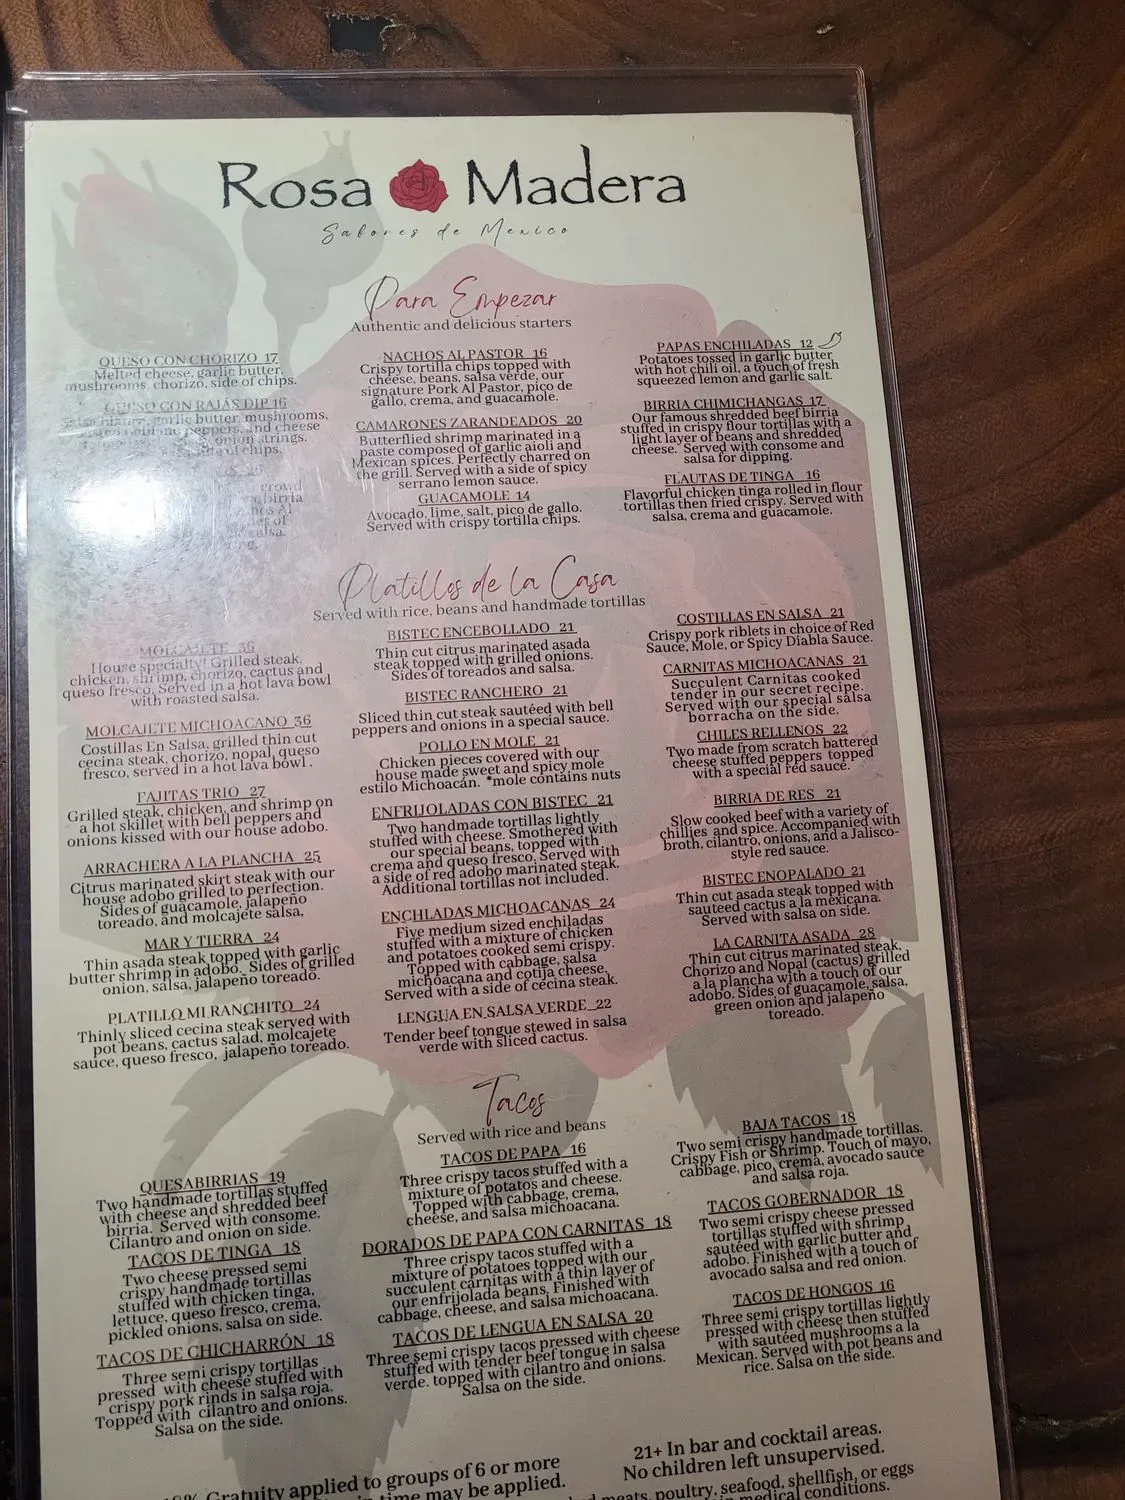 Rosa Madera
Sabores de Mexico
Para Empezar
Authentic and delicious starters
QUESO CON CHORIZO 17
Melted cheese, garlic butter,
mushrooms, chorizo, side of chips.
QUESO CON RAJAS DIP 16
garlic butter, mushrooms,
peppers, and cheese
onion strings.
side of chips.
crowd
birria
Al
of
salsa.
NACHOS AL PASTOR 16
Crispy tortilla chips topped with
cheese, beans, salsa verde, our
signature Pork Al Pastor, pico de
gallo, crema, and guacamole.
CAMARONES ZARANDEADOS 20
Butterflied shrimp marinated in a
paste composed of garlic aioli and
Mexican spices. Perfectly charred on
the grill. Served with a side of spicy
serrano lemon sauce.
GUACAMOLE 14
Avocado, lime, salt, pico de gallo.
Served with crispy tortilla chips.
PAPAS ENCHILADAS 12
Potatoes tossed in garlic butter
with hot chili oil, a touch of fresh
squeezed lemon and garlic salt.
BIRRIA CHIMICHANGAS 17
Our famous shredded beef birria
stuffed in crispy flour tortillas with a
light layer of beans and shredded
cheese. Served with consome and
salsa for dipping.
FLAUTAS DE TINGA 16
Flavorful chicken tinga rolled in flour
tortillas then fried crispy. Served with
salsa, crema and guacamole.
Platillos de la Casa
Served with rice, beans and handmade tortillas
MOLCAJETE 36
House specialty! Grilled steak,
chicken, shrimp, chorizo, cactus and
queso fresco. Served in a hot lava bowl
with roasted salsa.
MOLCAJETE MICHOACANO 36
Costillas En Salsa, grilled thin cut
cecina steak, chorizo, nopal, queso
fresco, served in a hot lava bowl .
FAJITAS TRIO 27
Grilled steak, chicken, and shrimp on
a hot skillet with bell peppers and
onions kissed with our house adobo.
ARRACHERA A LA PLANCHA 25
Citrus marinated skirt steak with our
house adobo grilled to perfection.
Sides of guacamole, jalapeño
toreado, and molcajete salsa,
MAR Y TIERRA 24
Thin asada steak topped with garlic
butter shrimp in adobo. Sides of grilled
onion, salsa, jalapeño toreado.
PLATILLO MI RANCHITO 24
Thinly sliced cecina steak served with
pot beans, cactus salad, molcajete
sauce, queso fresco, jalapeño toreado.
BISTEC ENCEBOLLADO 21
Thin cut citrus marinated asada
steak topped with grilled onions.
Sides of toreados and salsa.
BISTEC RANCHERO 21
Sliced thin cut steak sautéed with bell
peppers and onions in a special sauce.
POLLO EN MOLE 21
Chicken pieces covered with our
house made sweet and spicy mole
estilo Michoacán. *mole contains nuts
ENFRIJOLADAS CON BISTEC 21
Two handmade tortillas lightly
stuffed with cheese. Smothered with
our special beans, topped with
crema and queso fresco, Served with
a side of red adobo marinated steak.
Additional tortillas not included.
ENCHLADAS MICHOACANAS 24
Five medium sized enchiladas
stuffed with a mixture of chicken
and potatoes cooked semi crispy.
Topped with cabbage, salsa
michoacana and cotija cheese.
Served with a side of cecina steak.
LENGUA EN SALSA VERDE 22
Tender beef tongue stewed in salsa
verde with sliced cactus.
COSTILLAS EN SALSA 21
Crispy pork riblets in choice of Red
Sauce, Mole, or Spicy Diabla Sauce.
CARNITAS MICHOACANAS 21
Succulent Carnitas cooked
tender in our secret recipe.
Served with our special salsa
borracha on the side.
CHILES RELLENOS 22
Two made from scratch battered
cheese stuffed peppers topped
with a special red sauce.
BIRRIA DE RES 21
Slow cooked beef with a variety of
chillies and spice. Accompanied with
broth, cilantro, onions, and a Jalisco-
style red sauce.
BISTEC ENOPALADO 21
Thin cut asada steak topped with
sauteed cactus a la mexicana.
Served with salsa on side.
LA CARNITA ASADA 28
Thin cut citrus marinated steak,
Chorizo and Nopal (cactus) grilled
a la plancha with a touch of our
adobo. Sides of guacamole, salsa,
green onion and jalapeño
toreado.
Tacos
Served with rice and beans
QUESABIRRIAS 19
Two handmade tortillas stuffed
with cheese and shredded beef
birria. Served with consome.
Cilantro and onion on side.
TACOS DE TINGA 18
Two cheese pressed semi
crispy handmade tortillas
stuffed with chicken tinga,
lettuce, queso fresco, crema,
pickled onions, salsa on side.
TACOS DE CHICHARRÓN 18
Three semi crispy tortillas
pressed with cheese stuffed with
crispy pork rinds in salsa roja.
Topped with cilantro and onions.
Salsa on the side.
TACOS DE PAPA 16
Three crispy tacos stuffed with a
mixture of potatos and cheese.
Topped with cabbage, crema,
cheese, and salsa michoacana.
DORADOS DE PAPA CON CARNITAS 18
Three crispy tacos stuffed with a
mixture of potatoes topped with our
succulent carnitas with a thin layer of
our enfrijolada beans. Finished with
cabbage, cheese, and salsa michoacana.
TACOS DE LENGUA EN SALSA 20
Three semi crispy tacos pressed with cheese
stuffed with tender beef tongue in salsa
verde. topped with cilantro and onions.
Salsa on the side.
BAJA TACOS 18
Two semi crispy handmade tortillas.
Crispy Fish or Shrimp. Touch of mayo,
cabbage, pico, crema, avocado sauce
and salsa roja.
TACOS GOBERNADOR 18
Two semi crispy cheese pressed
tortillas stuffed with shrimp
sautéed with garlic butter and
adobo. Finished with a touch of
avocado salsa and red onion.
TACOS DE HONGOS 16
Three semi crispy tortillas lightly
pressed with cheese then stuffed
with sautéed mushrooms a la
Mexican. Served with pot beans and
rice. Salsa on the side.
Gratuity applied to groups of 6 or more
time may be applied.
21+ In bar and cocktail areas.
No children left unsupervised.
meats, poultry, seafood, shellfish, or eggs
medical conditions.